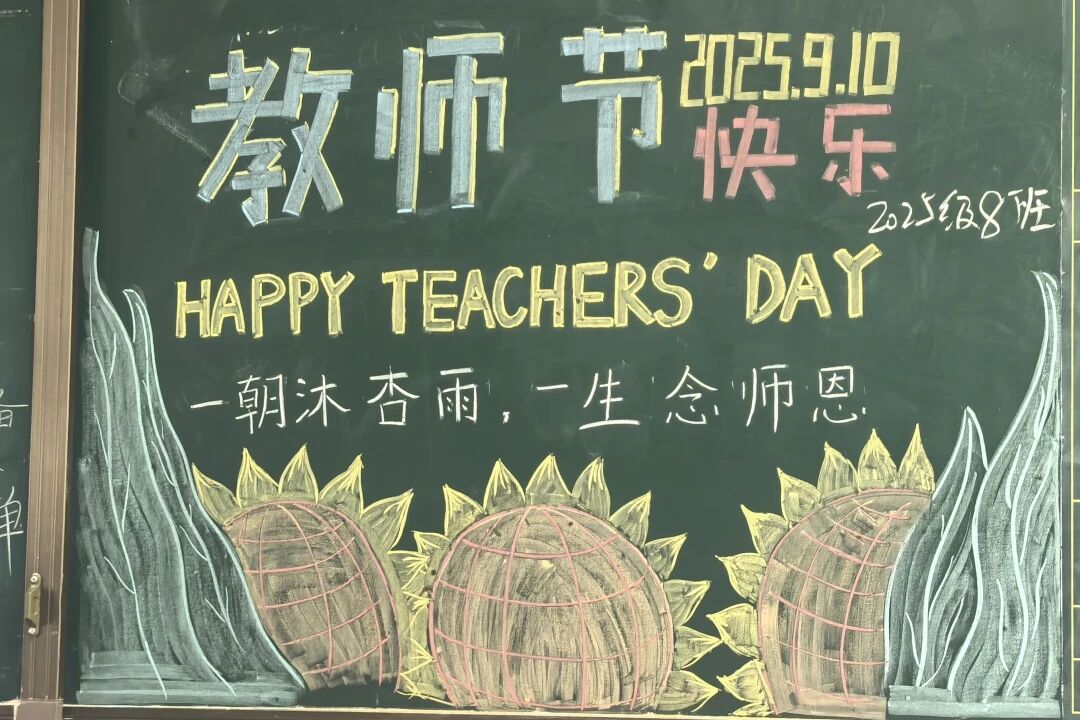 教师节 2025.9.10
快乐
2025级8班
HAPPY TEACHERS' DAY
一朝沐杏雨,一生念师恩
单